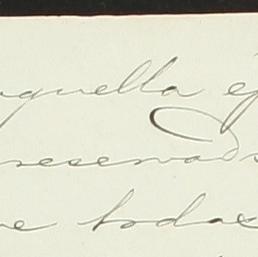 aquella é
reservads
e todas